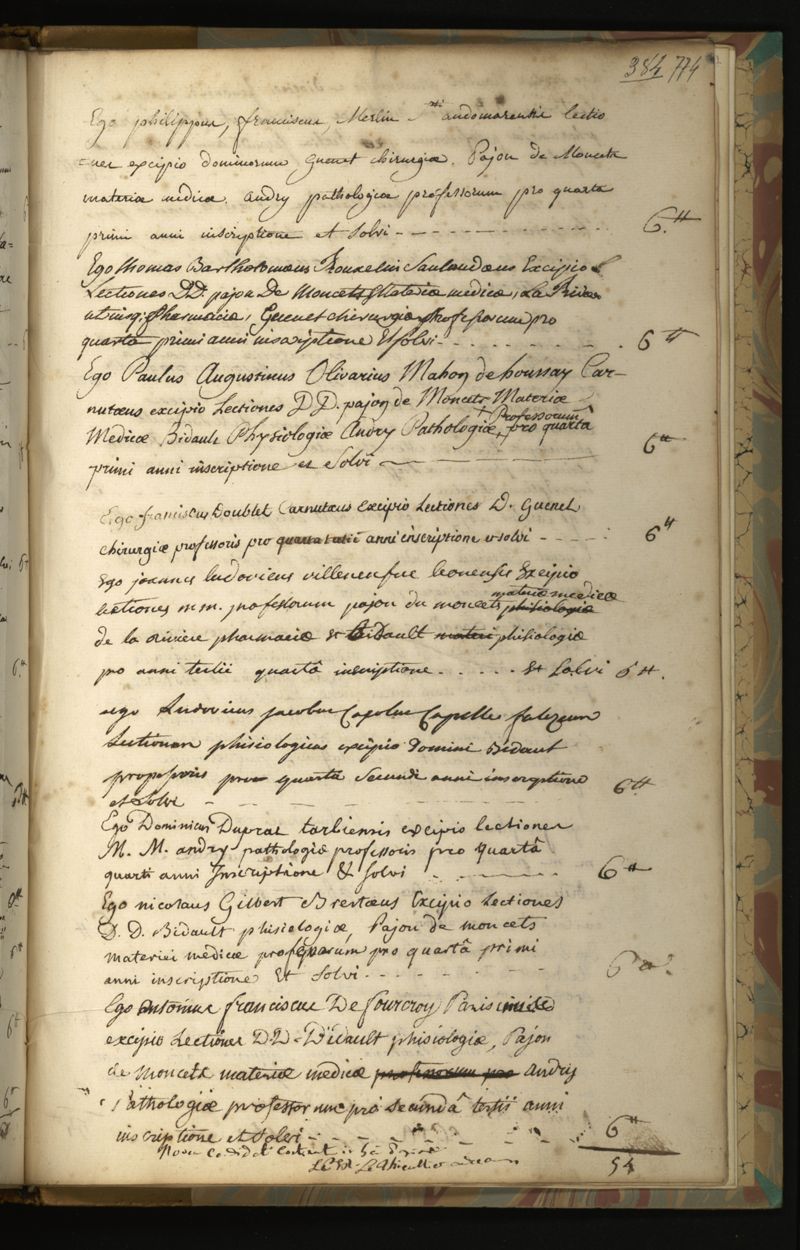 384 774
Ego philippus, franciscus, Merlin Sti andomarensis lectio
=nes excipio dominorum Guenet chirurgiæ. Pajon de Moncets
materiæ medicæ. andry pathologiæ professorum pro quarta
primi anni inscriptione et solvi - - - - - 6.tt
Ego thomas Bartholomæus Rouxelin Sanlaudæus Excipio
Lectiones DD. pajon De Moncets Materiæ medicæ, La Riviere
utriusq. Pharmaciæ, Guenet chirurgiæ professorum pro
quarta primi anni inscriptione Et solvi - - - - - 6 tt
Ego Paulus Augustinus Olivarius Mahon de houssay Car-
nutæus excipio Lectiones D D. pajon de Moncets Materiæ
Medicæ Bidault Physiologiæ Andry Pathologiæ, Professorum pro quartâ
primi anni inscriptione et Solvi - - - 6 tt
Ego franciscus Doublet Carnutæus excipio Lectiones D. Guenet
chirurgiæ professoris pro quarta tertii anni inscriptione et solvi - - - - 6 tt
Ego joannes ludovicus villeneufve leonensis Excipio
lectiones m m. professorum pajon du moncets materiæ medicæ phisiologiæ
de la riviere pharmaciæ et Bidault materi phisiologiæ
pro anni tertii quartâ inscriptione . . . . . Et Solvi 6 tt.
ego Ludovicus jacobus Carolus Capelle falezeus
Lectionem phisiologicas excipio Domini Bidaut
professoris pro quarta Secundi anni inscriptione
et Solvi - - - - - 6 tt
Ego Dominicus Duprat tarbiensis excipio lectiones
M. M. andry pathologiæ professoris pro quartâ
quarti anni Inscriptione & solvi - - - - 6 tt
Ego nicolaus Gilbert Brertæus Excipio Lectiones
D. D. Bidault phisiologiæ, Pajon de moncets
materiei medicæ professorum pro quartâ primi
anni inscriptione Et Solvi - - - - - 6 tt.
Ego Antonius franciscus De fourcroy Parisinus
excipio Lectiones D.D. Bidault phisiologiæ, Pajon
de Moncets materiæ medicæ professorum pro andry
Pathologiæ professorum pro secundâ tertii anni
inscriptione et Solvi - - - - - 6 tt
54
Le Thieullier